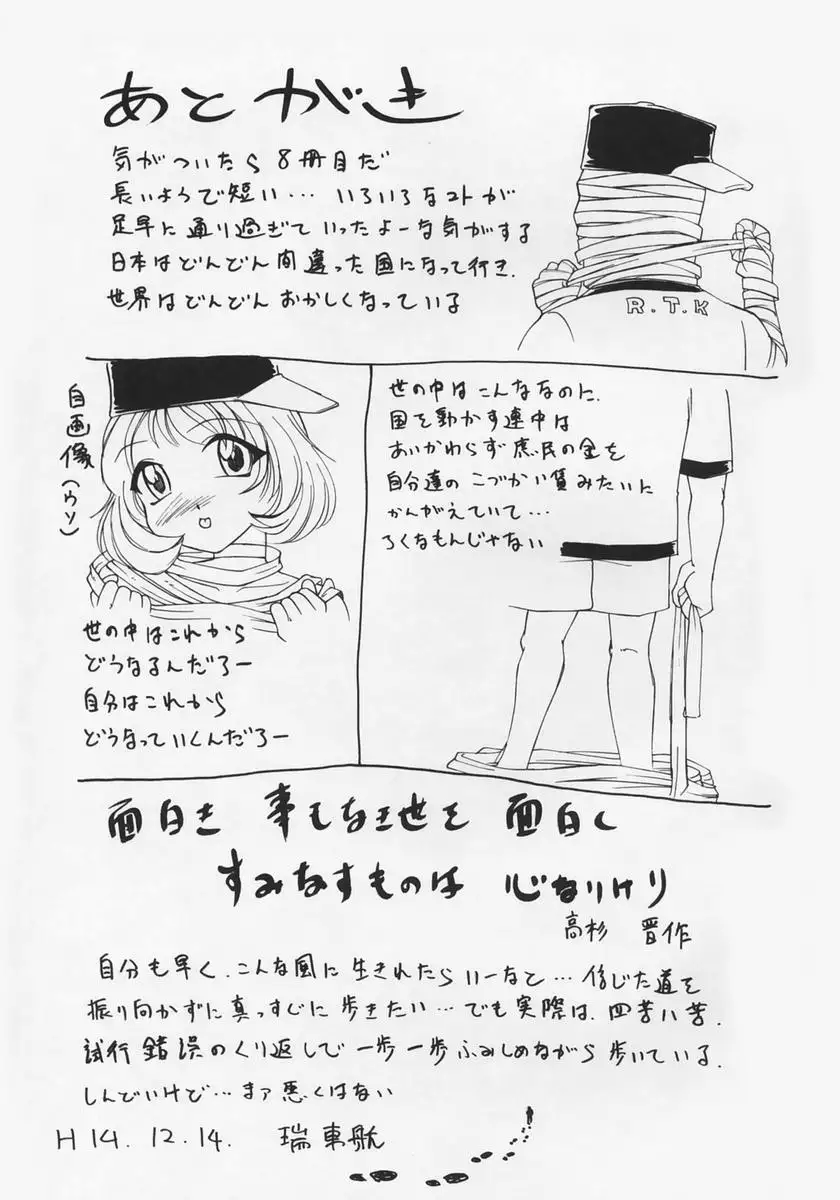 あとがき
気がついたら8冊目だ
長いようで短い…いろいろなコトが
足早に通り過ぎていったよーな気がする
日本はどんどん間違った国になって行き、
世界はどんどんおかしくなっている
R.T.K
自画像(ウソ)
世の中はこれから
どうなるんだろー
自分はこれから
どうなっていくんだろー
世の中はこんななのに、
国を動かす連中は
あいかわらず庶民の金を
自分達のこづかい質みたいに
かんがえていて…
ろくなもんじゃない
面白き 事もなき世を 面白く
すみなすものは 心なりけり
高杉 晋作
自分も早く、こんな風に生きれたらいーなと…信じた道を
振り向かずに真っすじに歩きたい…でも実際は、四苦八苦、
試行錯誤のくり返しで一歩一歩ふみしめながら歩いている。
しんどいけど…まァ悪くはない
H14.12.14. 瑞東航